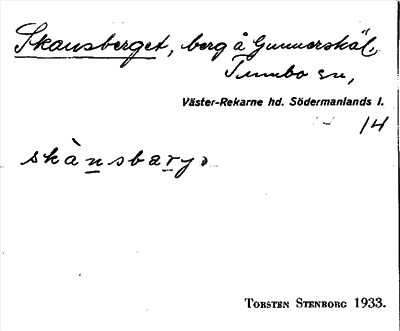 Skansberget, berg å Gunnarskäl,
Tumbo sn,
Väster-Rekarne hd. Södermanlands l.
14
skànsbaryə
Torsten Stenborg 1933.